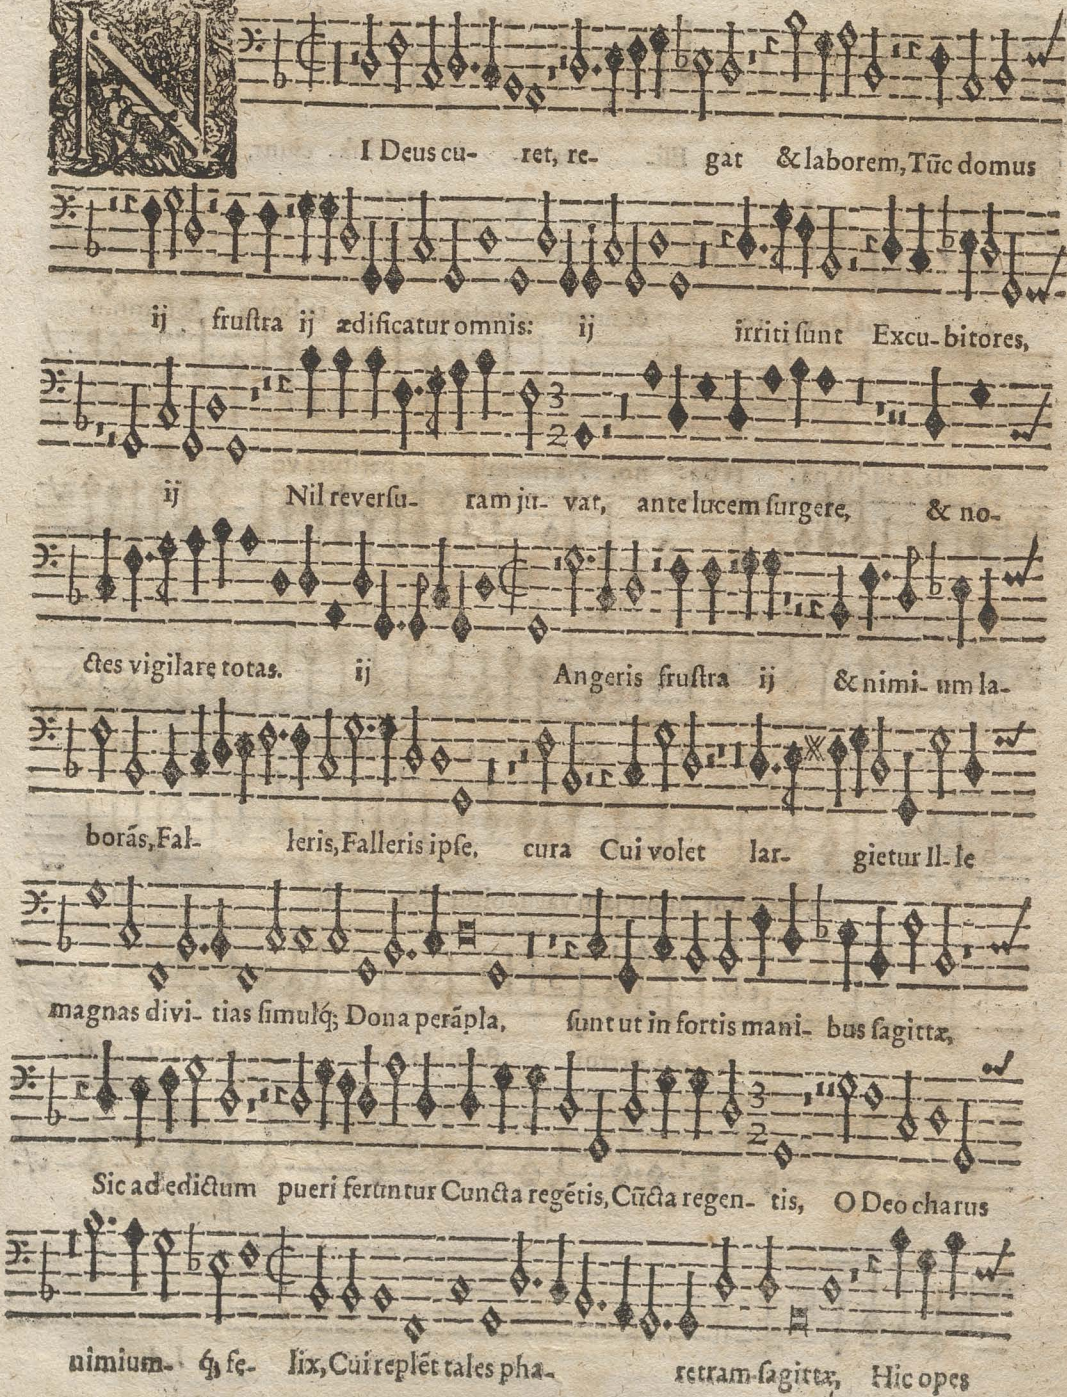 NI Deus cu- ret, re- gat & laborem, Tūc domus
ij frustra ij ædificatur omnis: ij irriti sunt Excu- bitores,
ij Nil reversu- ram ju- vat, ante lucem surgere, & no-
3
2
ctes vigilare totas. ij Angeris frustra ij & nimi- um la-
borās, Fal- leris, Falleris ipse, cura Cui volet lar- gietur Il- le
magnas divi- tias simulq́; Dona perāpla, sunt ut in fortis mani- bus sagittæ,
Sic ad edictum pueri feruntur Cuncta regētis, Cūcta regen- tis, O Deo charus
3
2
nimium- q́; fe- lix, Cui replēt tales pha- retram sagittæ, Hic opes